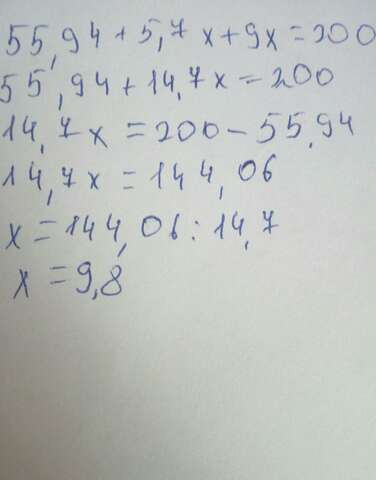 55,94+5,7x+9x=200
55,94+14,7x=200
14,7x=200-55,94
14,7x=144,06
x=144,06:14,7
x=9,8